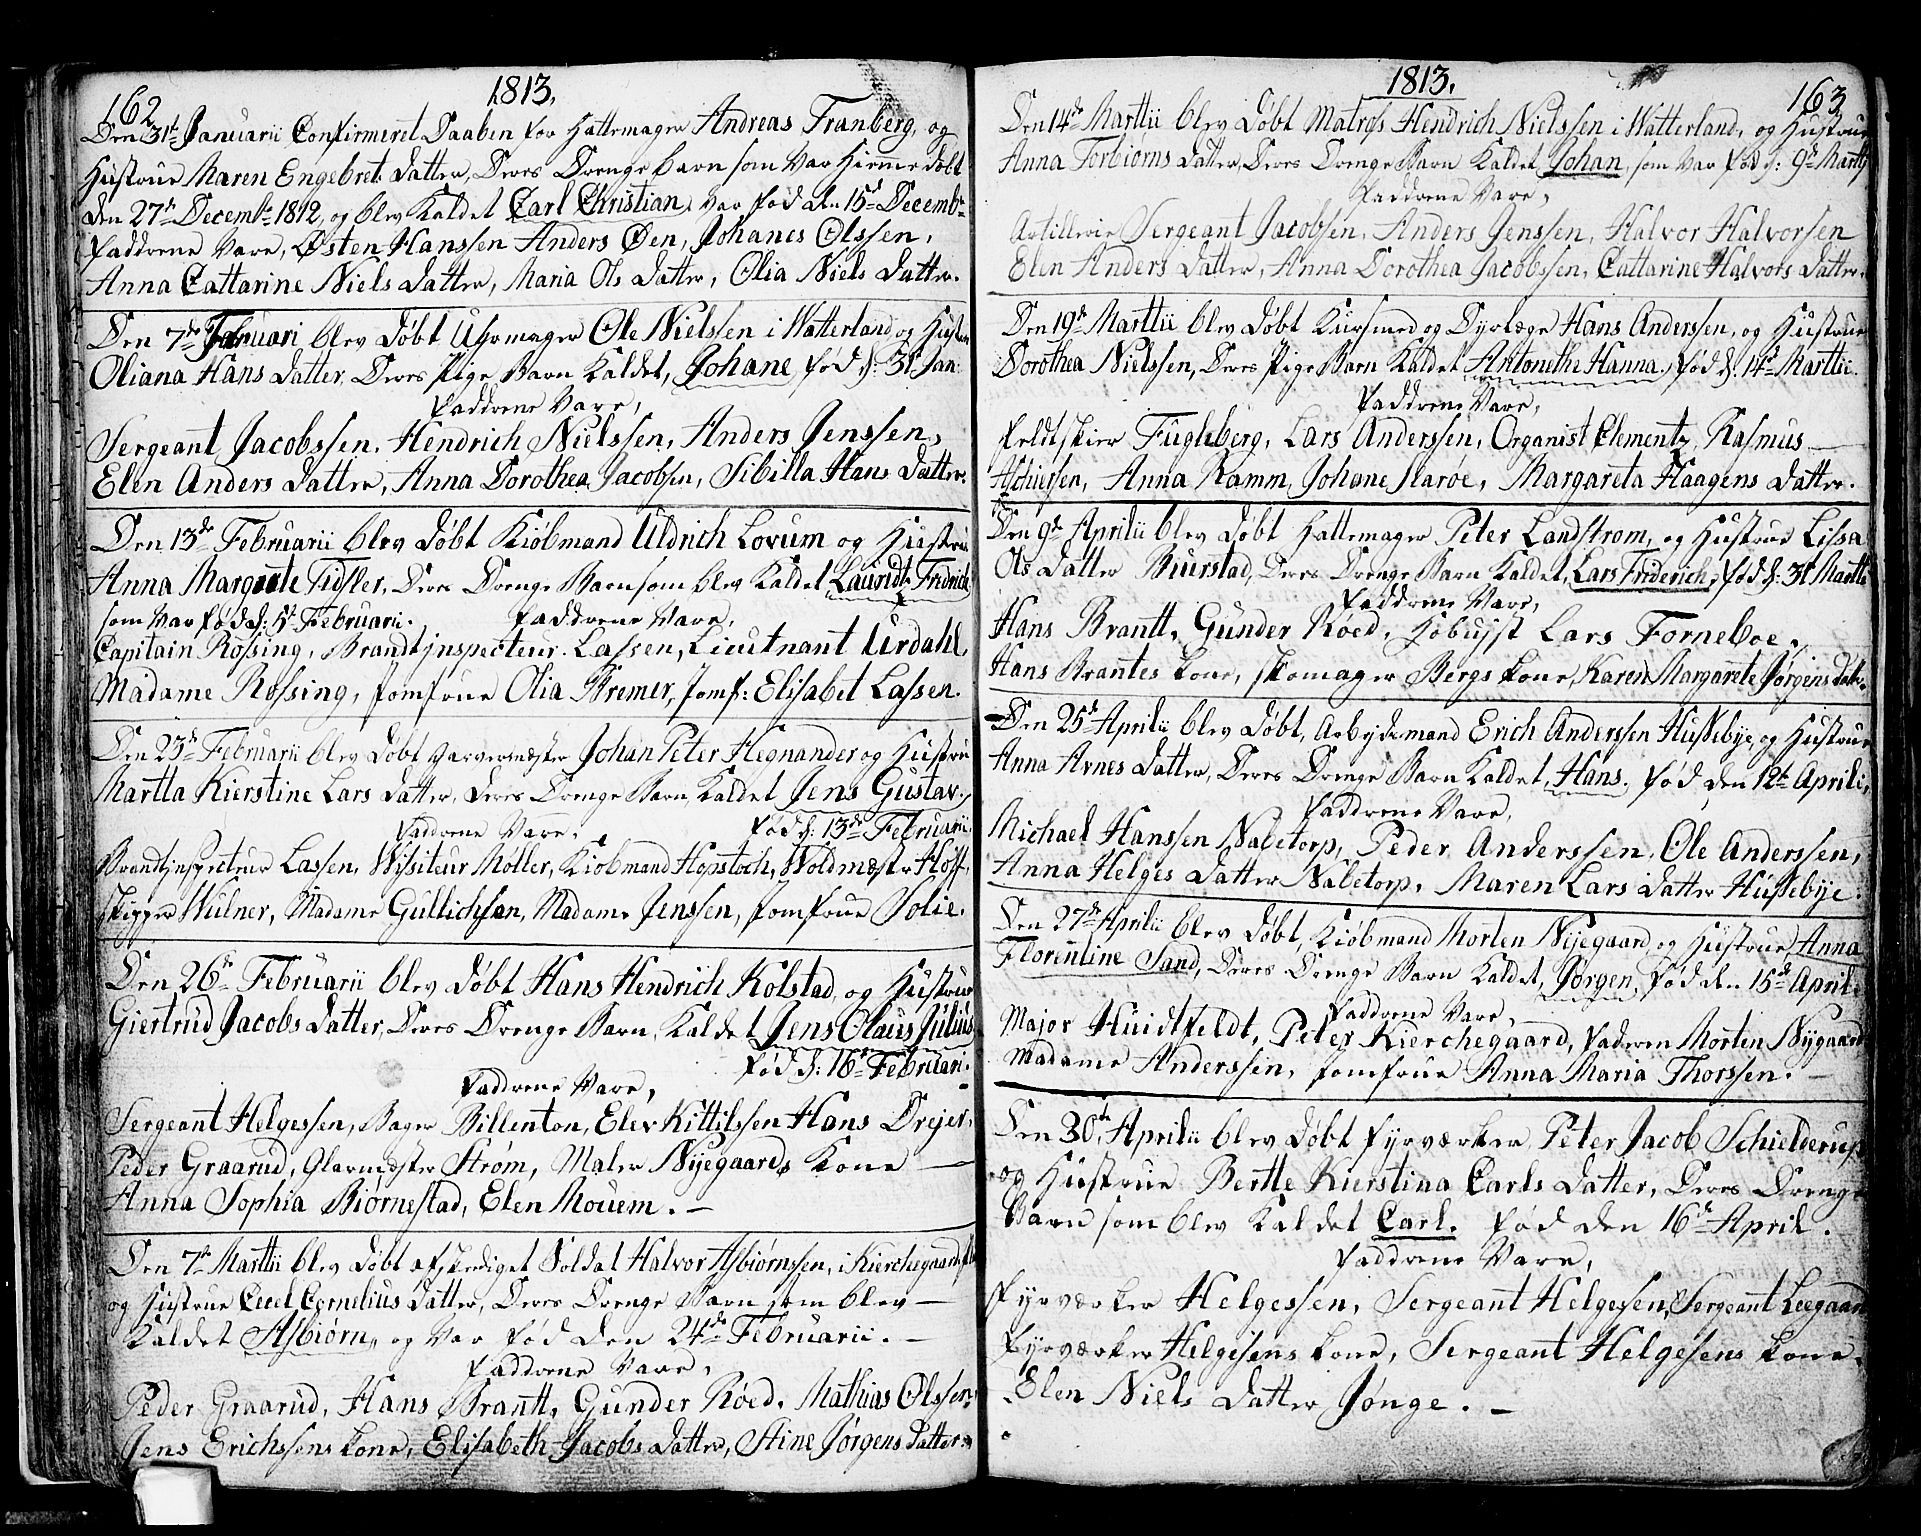 162
1813.
Den 31t Januarii Confirmeret Daaben for Hattemager Andreas Franberg, og
Hustrue Maren Engebret Datter, Deres Drenge barn som var Hiemmedøbt
den 27de Decembr 1812, og blev Kaldet Carl Christian, var fød den 15de Decembr
Faddrene Vare, Østen Hanssen Anders Øen, Johanes Olssen,
Anna Cattarine Niels Datter, Maria Ols Datter, Olia Niels Datter.
Den 7de Februari blev Døbt Uhrmager Ole Nielssen i Watterland og Hustru
Oliana Hans Datter, Deres Pige Barn Kaldet, Johane, fød d: 31t Jan:
Faddrene Vare,
Sergeant Jacobssen, Hendrich Nielssen, Anders Jenssen,
Elen Anders Datter, Anna Dorothea Jacobsen, Sibilla Hans Datter.
Den 13de Februarii blev Døbt Kiøbmand Uldrich Lorum og Hustrue
Anna Margrete Fidsler, Deres Drenge Barn som blev Kaldet Lauridt Fredrich
som var fød d: 5t Februarii. Faddrene Vare,
Capitain Røssing, Brandtinspecteur Lassen, Lieutnant Urdahl,
Madame Rossing, Jomfrue Olia Bremer, Jomf: Elisabet Lassen.
Den 23de Februarii blev Døbt Garvermester Johan Peter Hegnander og Hustrue
Martta Kierstine Lars Datter, Deres Drenge Barn Kaldet Jens Gustav,
Faddrene Vare, fød d: 13de Februarii
Brandtinspecteur Lassen, Wisiteur Møller, Kiobmand Hopstoch, Woldmester Hoff,
Skipper Wulner, Madame Gullichsen, Madame Jenssen, Jomfrue Solie.
Den 26de Februarii blev Døbt Hans Hendrich Kolstad, og Hustrue
Giertrud Jacobs Datter, Deres Drenge Barn, Kaldet Jens Olaus Julius
fød d: 16de Februari.
Faddrene Vare,
Sergeant Helgessen, Bager Billenton, Elev Kittilssen Hans Drejer,
Peder Graarud, Glarmester Strøm, Maler Nyegaards Kone —
Anna Sophia Biørnestad, Elen Mouem. —
Den 7de Martii blev Døbt afskediget Soldat Halvor Asbiørnssen, i Kierchegaard
og Hustrue Cecel Cornelius Datter, Deres Drenge Barn som blev —
Kaldet Asbiørn, og var fød den 24de Februarii. —
Faddrene Vare,
Peder Graarud, Hans Brantt, Gunder Røed, Mathias Olssen,
Jens Erichssens kone, Elisabeth Jacobs Datter, Stine Jørgens Datter.
1813.
163
Den 14de Martii blev Døbt Matros Hendrich Nielssen i Watterland, og Hustrue
Anna Torbiørns Datter, Deres Drenge Barn Kaldet Johan, som var fød d: 9de Martii
Faddrene Vare,
Artillerie Sergeant Jacobsen, Anders Jenssen, Halvor Halvorsen
Elen Anders Datter, Anna Dorothea Jacobssen, Cattarine Halvors Datter.
Den 19de Martii blev Døbt Kursmed og Dyrlæge Hans Anderssen, og Hustrue
Dorothea Nielssen, Deres Pige Barn Kaldet Antonethe Hanna, fød d: 14de Martii.
Faddrene Vare,
Feldtskier Fugleberg, Lars Anderssen, Organist Clementz, Rasmus —
Aschiersen, Anna Ramm, Johane Skaroe, Margareta Haagens Datter.
Den 9de Aprilii blev Døbt Hattemager Peter Landstrom, og Hustrue Lissa
Ols Datter Biurstad, Deres Drenge Barn Kaldet, Lars Friderich, fød d: 31t Martii
Faddrene Vare,
Hans Brantt, Gunder Røed, Lars Forneboe,
Hans Brantes kone, Skomager Bergs kone, Karen Margarete Jørgens datter.
Den 25de Aprilii blev Døbt, Arbejdsmand Erich Anderssen Hussebye, og Hustrue
Anna Arnes Datter, Deres Drenge Barn Kaldet, Hans, fød den 12te Aprili,
Faddrene Vare,
Michael Hanssen Nabetorp, Peder Anderssen, Ole Anderssen,
Anna Helges Datter Nabetorp, Maren Lars Datter Hussebye.
Den 27de Aprilii blev Døbt, Kiøbmand Morten Nyegaard, og Hustrue, Anna
Florentine Sand, Deres Drenge Barn Kaldet, Jørgen, fød den 15de April
Faddrene Vare,
Major Huidtfeldt, Peter Kierchegaard, Faderen Morten Nygaard
Madame Anderssen, Jomfrue Anna Maria Thorssen. —
Den 30te Aprilii blev Døbt Fyrværker Peter Jacob Schielderup
og Hustrue Bertte Kierstina Carls Datter, Deres Drenge
Barn som blev Kaldet Carl. fød den 16de April.
Faddrene Vare,
Fyrværker Helgessen, Sergeant Helgesen, Sergeant Leegaard
Fyrværker Helgesens kone, Sergeant Helgesens kone.
Elen Niels Datter Jonge. —